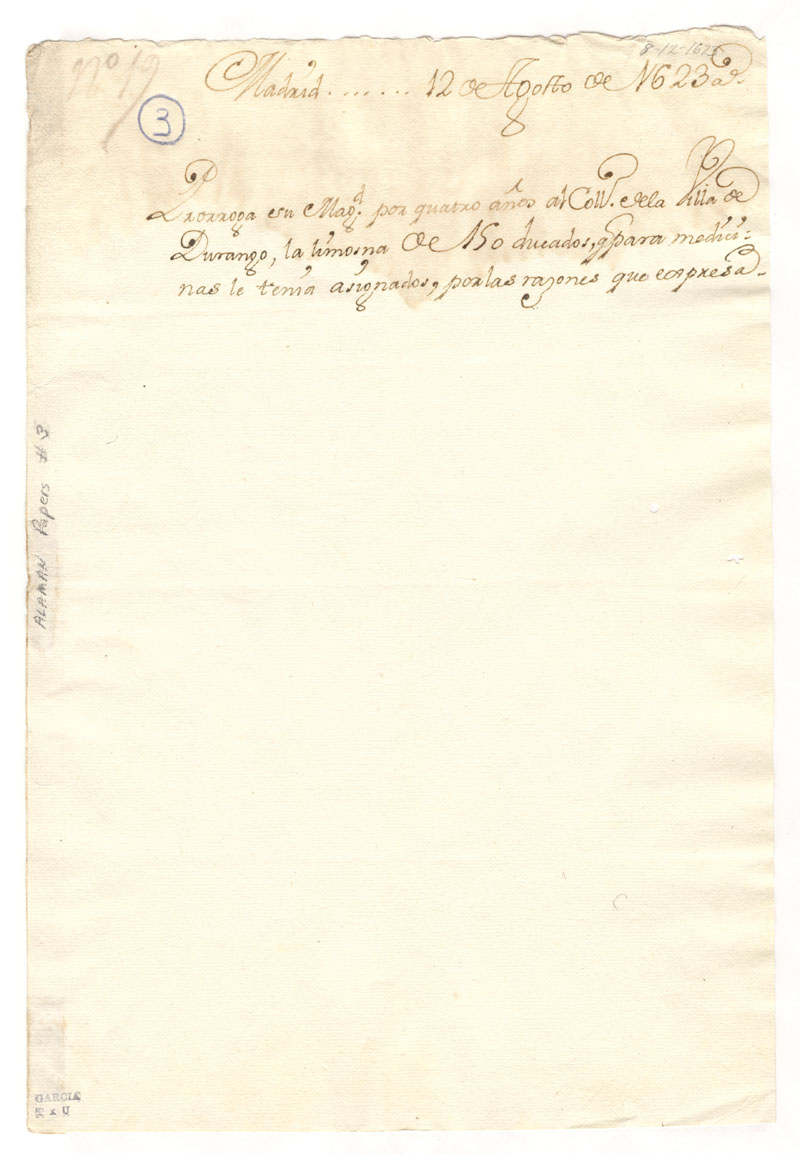 8-12-1623
Nº 19
Madrid....... 12 de Agosto de 1623 a.s
3
Prorroga su Mag.d por quatro años al Coll.o de la Villa de
Durango, la limosna de 150 ducados, q para medici=
nas le tenia asignados, por las razones que expresa.
ALAMAN Papers #3
GARCIA
T x U